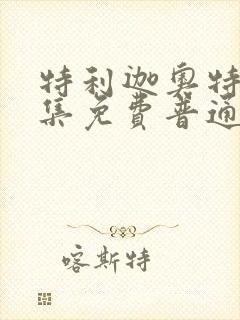 特利迦奥特
集免費普通
喀斯特